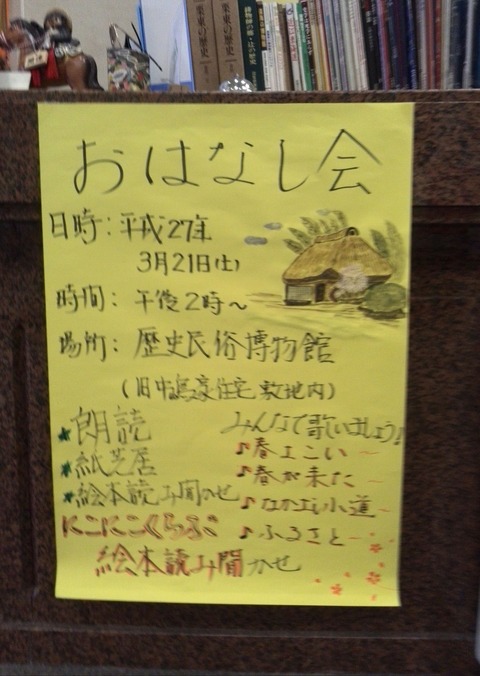 栗東の歴史
栗東の歴史
おはなし会
日時：平成27年
3月21日(土)
時間：午後2時～
場所：歴史民俗博物館
(旧中島家住宅敷地内)
★朗読
★紙芝居
★絵本読み聞かせ
にこにこくらぶ
絵本読み聞かせ
みんなで歌いましょう!
♪春よこい～
♪春が来た～
♪なかよし小道～
♪ふるさと～